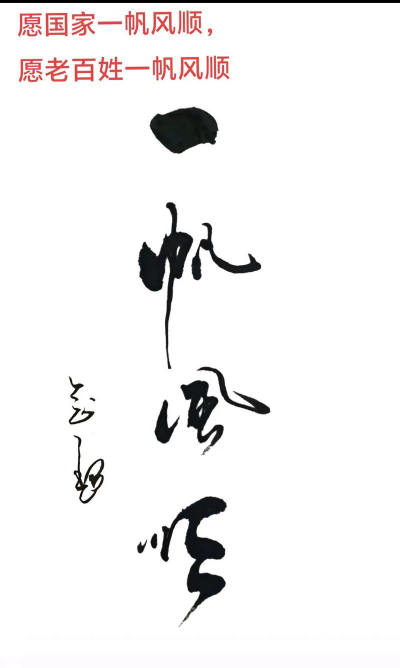 愿国家一帆风顺，
愿老百姓一帆风顺
一
帆
風
順